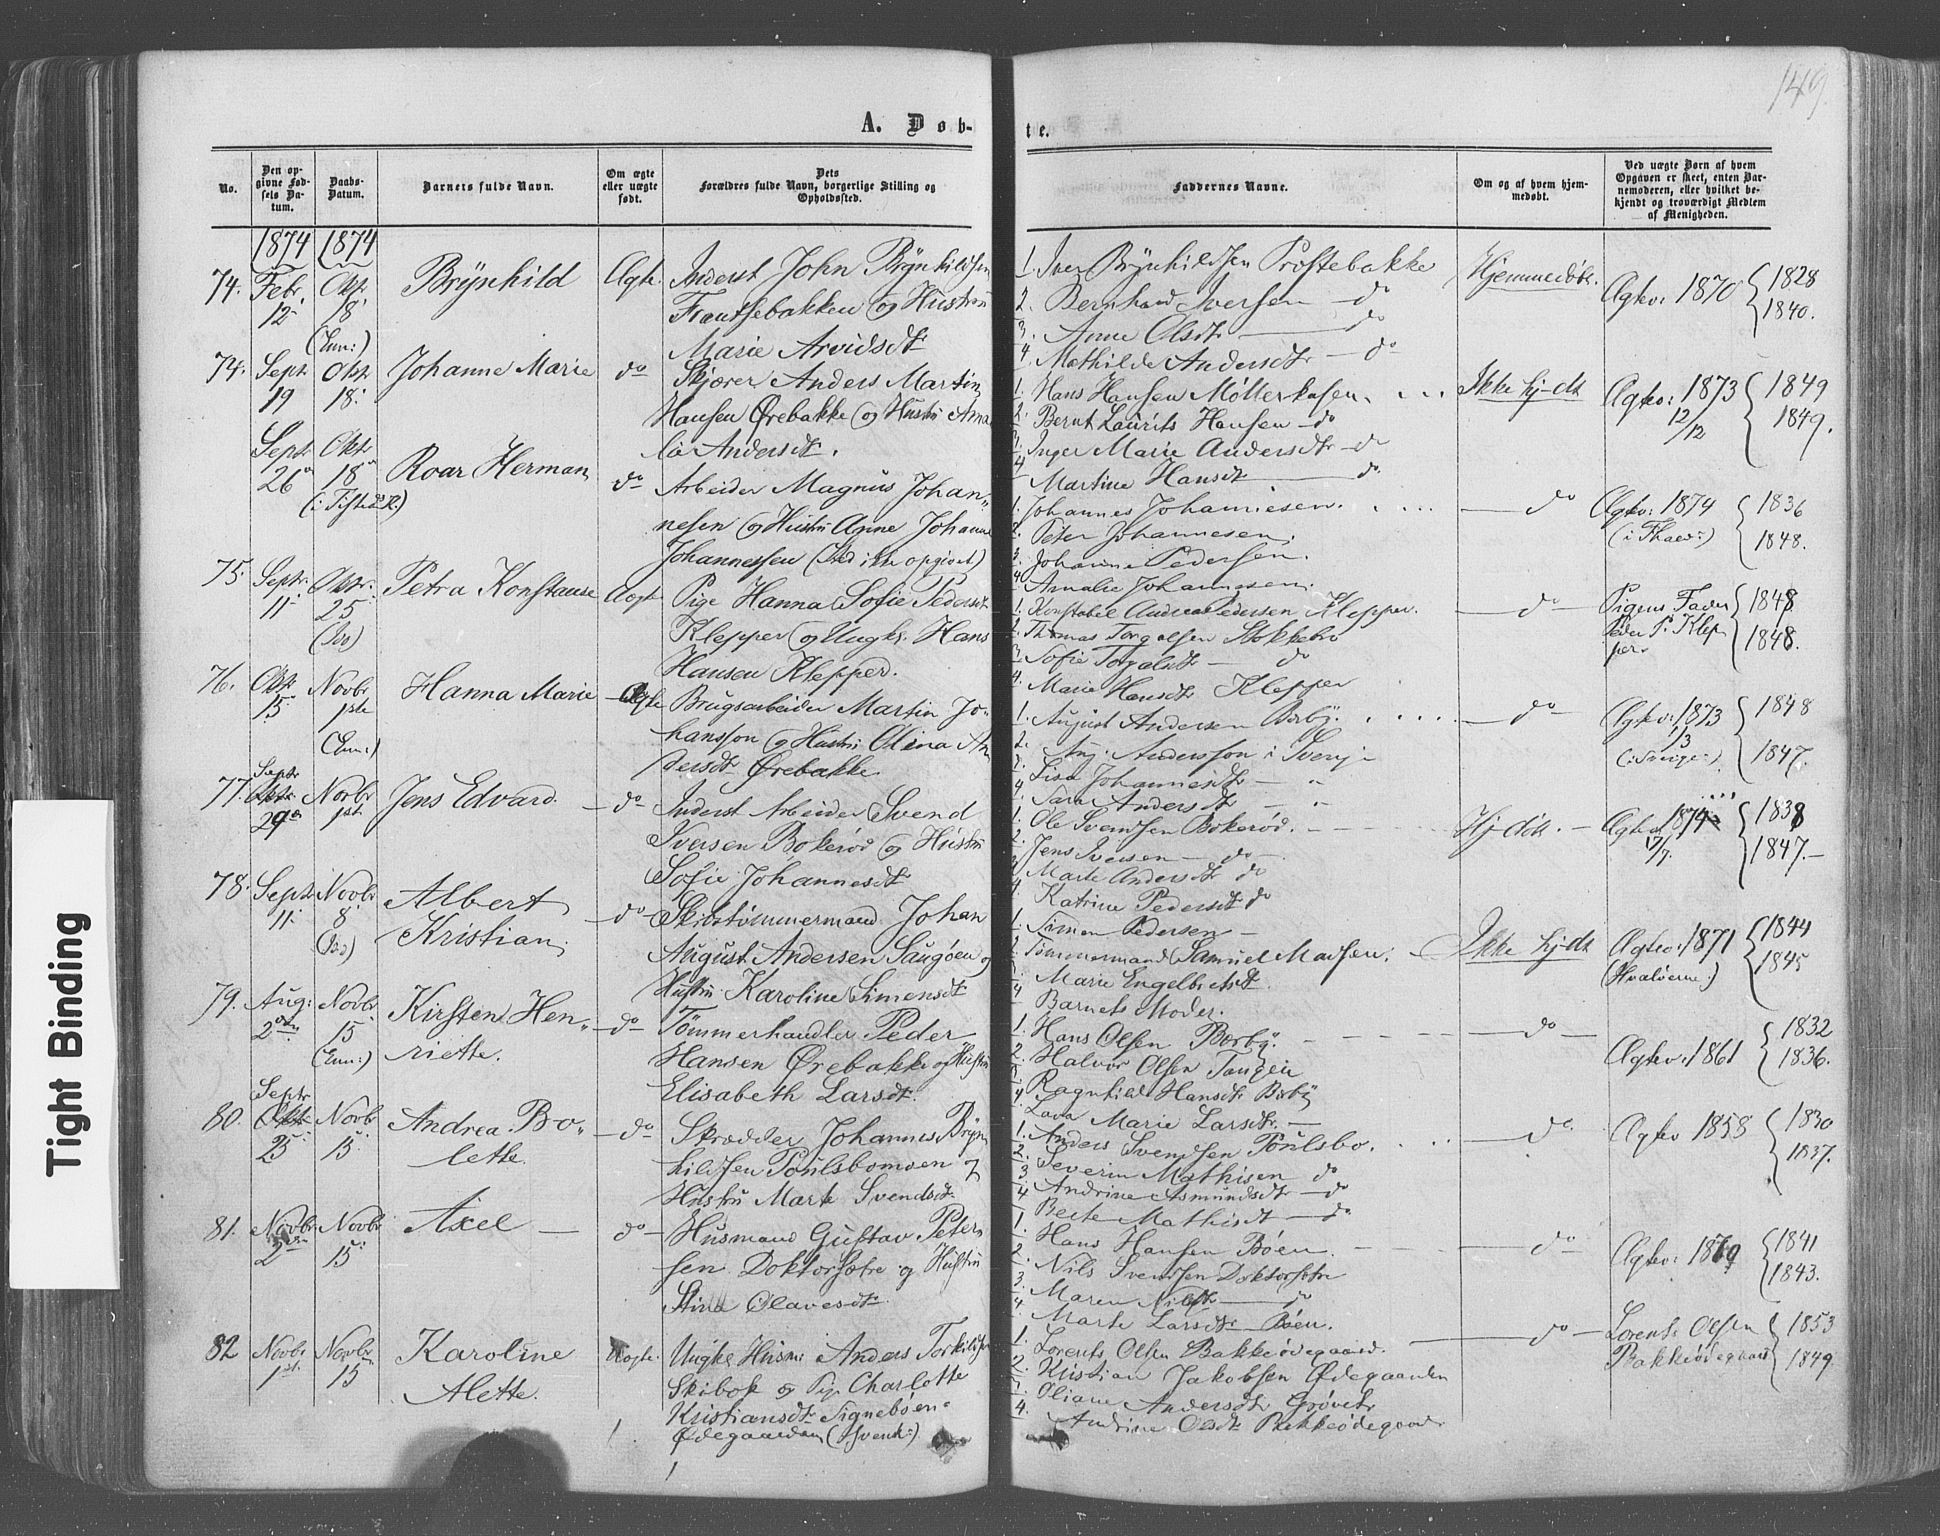 149.
A. Døb-
te.
No.
Den op-
givne Fød-
sels Da-
tum.
Daabs-
Datum.
Barnets fulde Navn.
Om ægte
eller uægte
født.
Dets
Forældres fulde Navn, borgerlige Stilling og
Opholdssted.
Faddernes Navne.
Om og af hvem hjem-
medøbt.
Ved uægte Børn af hvem
Opgaven er skeet, enten Bar-
nemoderen, eller hvilket be-
kjendt og troværdigt Medlem
af Menigheden.
1874 1874
74. Febr. 12 Oktr. 18 (Enn:) Brÿnhild Ægte. Inderst John Brÿnhildsen
Frontsebakken og Hustru
Marie Arvidsdt.
1. Iver Brÿnhildsen Prøstebakke
2. Bernhard Iversen — do
3. Anne Olsdtr — do
4. Mathilde Andersdtr — do
Hjemmedøbt.
Ægtev: 1870 { 1828
1840.
74. Sept 19 Oktr. 18. Johanne Marie do Skjærer Anders Martin
Hansen Ørebakke og Hustr: Ama
lia Andersdt.
1. Hans Hansen Møllerhasen. . . .
2. Bernt Laurits Hansen do
3. Inger Marie Andersdtr — do
4 Martine Hansdt — do
Ikke hj-dt
Ægtev: 1873 { 1849
12/12 1849.
Septr 26 Oktr 18 (i Tistedal K:) Roar Herman do Arbeider Magnus Johan-
nesen og Hustr: Anne Johanne
Johannessen (Sted ikke opgivet)
1. Johannes Johannesen. . . .
2. Peter Johannesen.
3. Johanne Pedersen.
4. Amalie Johannesen.
do
Ægtev: 1874 { 1836
1848.
75. Septr: 11 Oktr: 25 Petra Konstanse Uægte Pige Hanna Sofie Pedersdt
Klepper og Ungk. Hans
Hansen Klepper.
1. Konstabel Andreas Pedersen Klepper.
2. Thomas Torgalsen Stokkebro
3. Sofie Torgalsdt — do
4. Marie Hansdtr Klepper
do
Pigens Fader { 1848
Peder P. Klep 1848.
per.
76. Oktr. 15 Novbr 1ste (Enn:) Hanna Marie Ægte Brugsarbeider Martin Jo-
hansson og Hustr: Olina An
dersdt. Ørebakke
1. August Andersen Borbÿ. . . .
2. Aug. Andersson i Sverige
3. Lisa Johannesdtr — "
4. Sara Andersdtr — "
do
Ægtev: 1873 { 1848
1/3
(i Sverige:) 1847.
77. Septr Oktr: 29 Novbr 1ste Jens Edvard — do Inderst Arbeider Svend
Iversen Bokerød og Hustru
Sofie Johannesdt
1. Ole Svendsen Bokerød.
2. Jens Iversen — do —
3. Marte Andersdtr do
4. Katrine Pedersdtr do
Hj-døbt. —
Ægtev 1874 { 1838
17/7. 1847. —
78. Septr 11 Novbr 8. Albert
Kristian — do Skibstømmermand Johan
August Andersen Saugøen og
Hustru Karoline Simensdt
1. Simen Pedersen —
2. Tømmermand Samuel Madsen.
3. Marie Engelbretsdt.
4 Barnets Moder.
Ikke hj-dt
Ægtev: 1871 { 1844
(Hvaløerne:) 1845
79. Aug: 2den Novbr 15 (Enn:) Kirsten Hen-
riette. — do Tømmerhandler Peder
Hansen Ørebakke og Hustru
Elisabeth Larsdt.
1. Hans Olsen Borbÿ.
2. Halvor Olsen Tangen
3. Ragnhild Hansdtr Borbÿ
4. Lava Marie Larsdtr. —
do
Ægtev: 1861 { 1832
1836.
80. Septr Oktr 25 Novbr 15. Andrea Bo-
lette. — do Skrædder Johannes Brÿn
hildsen Poulsbomoen og
Hustru Marte Svendsdt
1. Anders Svendsen Poulsbo.
2. Severin Mathisen do
3 Andrine Asmundsdtr — do
4 Berte Mathisdt — do
do.
Ægtev 1858 { 1830
1837.
81. Novbr 2den Novbr 15. Axel — do — Husmand Gustav Peter
sen Doktorsætre og Hustru
Stina Olavesdt.
1. Hans Hansen Bøen.
2. Nils Svendsen Doktorsætre
3. Maren Nilsdtr — do
4. Marte Larsdtr Bøen.
do
Ægtev: 1870 { 1841
1843.
82 Novbr 1st. Novbr 15 Karoline
Alette. Uægte. Ungk. Husm: Anders Torkildsen
Skibok og Pig. Charlotte
Kristiansdt. Signebøen-
Ødegaarden (Svensk:)
1. Lorents Olsen Bakkeødegaard.
2. Kristian Jakobsen Ødegaarden
3. Oliane Andersdtr Grøvetr
4. Andrine Olsdt. Bakkeødegaard
do —
Lorents Olsen { 1853
Bakkeødegaard 1849.
Tight Binding